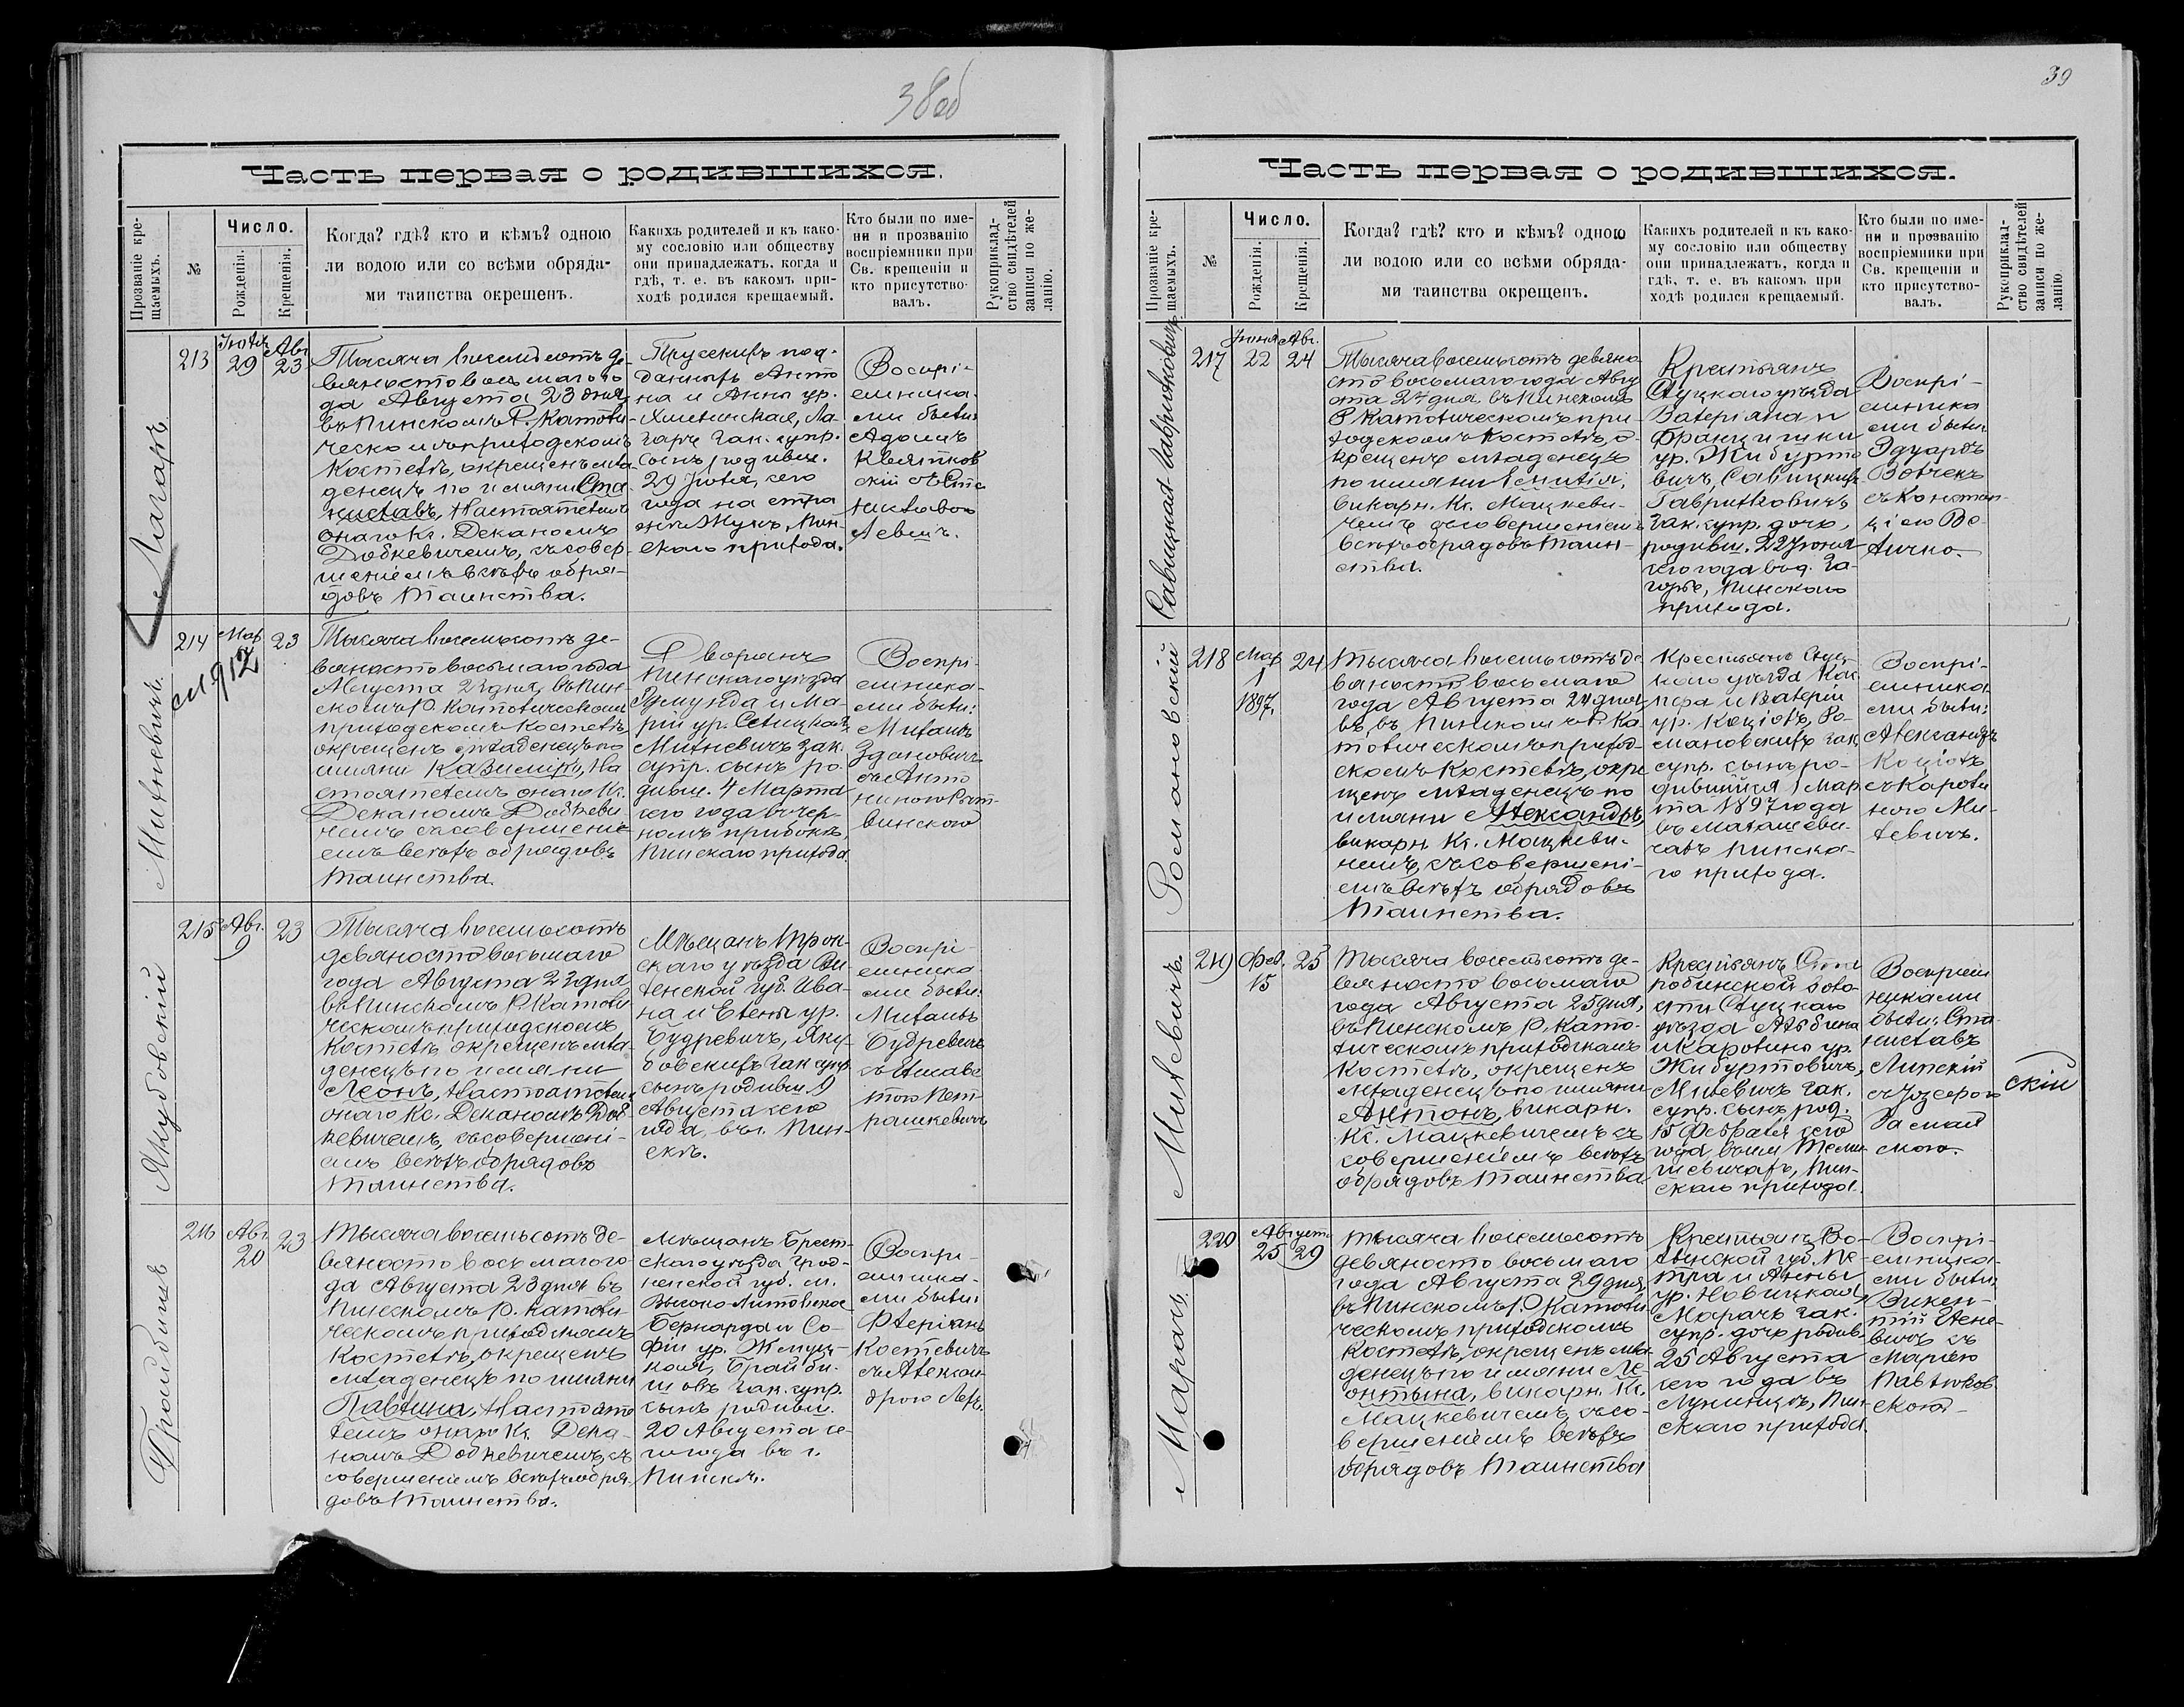 38об
Часть первая о родившихся.
Прозваніе кре-
щаемыхъ.
№
Число.
Рожденія.
Крещенія.
Когда? гдѣ? кто и кѣмъ? одною
ли водою или со всѣми обряда-
ми таинства окрещенъ.
Какихъ родителей и къ како-
му сословію или обществу
они принадлежатъ, когда и
гдѣ, т. е. въ какомъ при-
ходѣ родился крещаемый.
Кто были по име-
ни и прозванію
воспріемники при
Св. крещеніи и
кто присутство-
валъ.
Рукоприклад-
ство свидѣтелей
записи по же-
ланію.
Лагаръ.
213
Іюля
29
Авг.
23
Тысяча восемьсотъ де-
вяносто восьмаго го
да Августа 23 дня
въ Пинскомъ Р. Католи-
ческомъ приходскомъ
Костелѣ, окрещенъ мла-
денецъ по имяни Ста-
ниславъ, Настоятелемъ
онаго Кс. Деканомъ
Добкевичемъ, съ совер-
шеніемъ всѣхъ обря-
довъ Таинства.
Прусскихъ под-
данныхъ Анто
на и Анны ур.
Хмелинская, Ла-
гаръ зак. супр.
сынъ родивш.
29 Іюля, сего
года на
Пин-
скаго прихода.
Воспрі-
емника-
ми были:
Адамъ
Квятков
скій съ Ста
ниславою
Левш.
Михневичъ.
214
Мар.
сл 912
23
Тысяча восемьсотъ де-
вяносто восьмаго года
Августа 23 дня, въ Пин-
скомъ Р. Католическомъ
приходскомъ Костелѣ
окрещенъ младенецъ по
имяни Казиміръ, На
стоятелемъ онаго Кс.
Деканомъ Добкеви
чемъ съ совершені-
емъ всѣхъ обрядовъ
Таинства.
Дворянъ
Пинскаго уѣзда
Эдмунда и Ма-
ріи ур.
Михневичъ зак.
супр. сынъ ро-
дивш. 4 Марта
сего года
Пинскаго прихода
Воспрі-
емника-
ми были:
Михаилъ
Здановичъ
съ Анто
ниною
Якубовскій
215
Авг.
9
23
Тысяча восемьсотъ
девяносто восьмаго
года Августа 23 дня
въ Пинскомъ Р. Католи-
ческомъ приходскомъ
Костелѣ окрещенъ мла-
денецъ по имяни
Леонъ, Настоятелемъ
онаго Кс. Деканомъ Доб
кевичемъ, съ совершені-
емъ всѣхъ обрядовъ
Таинства.
Мѣщанъ Трок-
скаго уѣзда Ви-
ленской губ. Ива-
на и Елены ур.
Будревичъ, Яку-
бовскихъ зак. супр.
сынъ родивш. 9
Августа сего
года, въ г. Пин-
скѣ.
Воспрі-
емника-
ми были:
Михаилъ
Будревичъ
Пет-
рашкевичъ
Грайбишъ
216
Авг.
20
23
Тысяча восемьсотъ де-
вяносто восьмаго го-
да Августа 23 дня въ
Пинскомъ Р. Католи-
ческомъ приходскомъ
Костелѣ, окрещенъ
младенецъ по имяни
Павлина, Настояте
лемъ онаго Кс. Дека-
номъ Добкевичемъ, съ
совершеніемъ всѣхъ обря-
довъ Таинства.
Мѣщанъ Брест-
скаго уѣзда, Грод-
ненской губ. м.
Высоко-Литовскъ
Бернарда и Со-
фіи ур.
зак. супр.
сынъ родивш.
20 Августа се-
го года въ г.
Пинскѣ.
Воспрі-
емника-
ми были:
Флеріанъ
Костевичъ
съ Алексан-
дрою
39
Часть первая о родившихся.
Прозваніе кре-
щаемыхъ.
№
Число.
Рожденія.
Крещенія.
Когда? гдѣ? кто и кѣмъ? одною
ли водою или со всѣми обряда-
ми таинства окрещенъ.
Какихъ родителей и къ како-
му сословію или обществу
они принадлежатъ, когда и
гдѣ, т. е. въ какомъ при
ходѣ родился крещаемый.
Кто были по име-
ни и прозванію
воспріемники при
Св. крещеніи и
кто присутство-
валъ.
Рукоприклад-
ство свидѣтелей
записи по же-
ланію
Савицкая Гаврилковичъ
217
Іюня
22
Авг.
24
Тысяча восемьсотъ девяно
сто восьмаго года Авгу
ста 24 дня въ Пинскомъ
Р. Католическомъ при
ходскомъ Костелѣ, о-
крещенъ младенецъ
по имяни Эмилія,
викарн. Кс. Мацкеви-
чемъ съ совершеніемъ
всѣхъ обрядовъ Таин-
ства.
Крестьянъ
Слуцкаго уѣзда
Валеріана и
Францишки
ур. Жибурто
вичъ, Савицкихъ
Гаврилковичъ
зак. супр. дочь,
родивш. 22 Іюня
сего года въ д. За-
горье, Пинскаго
прихода.
Воспрі-
емника
ми были
Эдуардъ
Волчекъ
съ Констан-
ціею Во-
Романовскій
218
Мар
1
1897.
24
Тысяча восемьсотъ де
вяносто восьмаго
года Августа 24 дня
въ, въ Пинскомъ Р. Ка
толическомъ приход-
скомъ Костелѣ, окре
щенъ младенецъ по
имяни Александръ,
викарн. Кс. Мацкеви-
чемъ, съ совершені-
емъ всѣхъ обрядовъ
Таинства.
Крестьянъ Слуц-
каго уѣзда Кас
пера и Валеріи
ур. Коціолъ, Ро-
мановскихъ зак.
супр. сынъ ро-
дившійся 1 Мар
та 1897 года
въ
Пинска-
го прихода.
Воспрі-
емника
ми были:
Александръ
Коціолъ
съ Кароли
ною Ми-
левичъ.
Милевичъ.
219
Фев.
15
25
Тысяча восемьсотъ де-
вяносто восьмаго
года Августа 25 дня,
въ Пинскомъ Р. Като-
лическомъ приходскомъ
Костелѣ, окрещенъ
младенецъ по имяни
Антонъ, викарн.
Кс. Мацкевичемъ съ
совершеніемъ всѣхъ
обрядовъ Таинства
Крестьянъ Ста
робинской воло-
сти Слуцкаго
уѣзда Альбина
и Каролины ур.
Жибуртовичъ,
Милевичъ зак.
супр. сынъ, род.
15 Февраля сего
года
Пин-
скаго прихода.
Воспріем
никами
были: Ста-
ниславъ
Липскій
съ Іозефою
скій
Марачъ.
220
Августа
25
29
Тысяча восемьсотъ
девяносто восьмаго
года Августа 29 дня,
въ Пинскомъ Р. Католи
ческомъ приходскомъ
Костелѣ, окрещенъ мла
денецъ по имяни Ле
онтына, викарн. Кс.
Мацкевичемъ, съ со-
вершеніемъ всѣхъ
обрядовъ Таинства
Крестьянъ Во-
лынской губ. Пе
тра и Анны
ур. Новицкая,
Марачъ зак.
супр. дочь родив.
25 Августа
сего года въ
Лунинцѣ, Пин
скаго прихода.
Воспрі-
емника-
ми были
Викен-
тій
съ
Маріею
Павлюков
скою